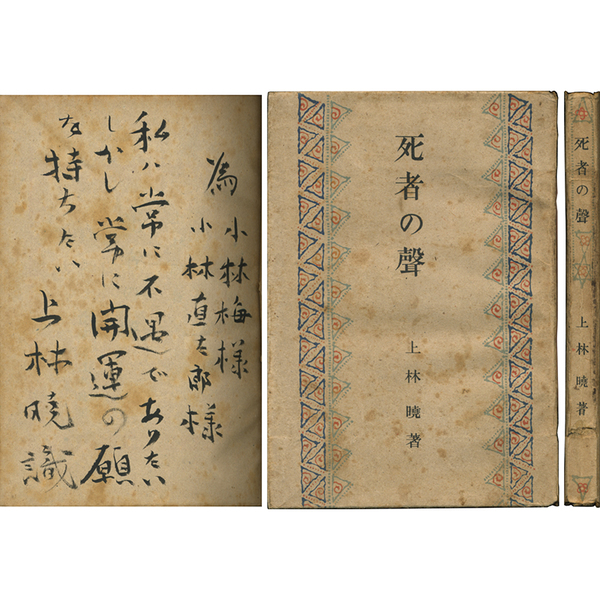 為 小林梅様
小林直太郎様
私ハ常に不遇でありたい
しかし常に開運の願い
を持ちたい
上林暁識
死者の聲
上林曉著
死者の聲
上林曉著